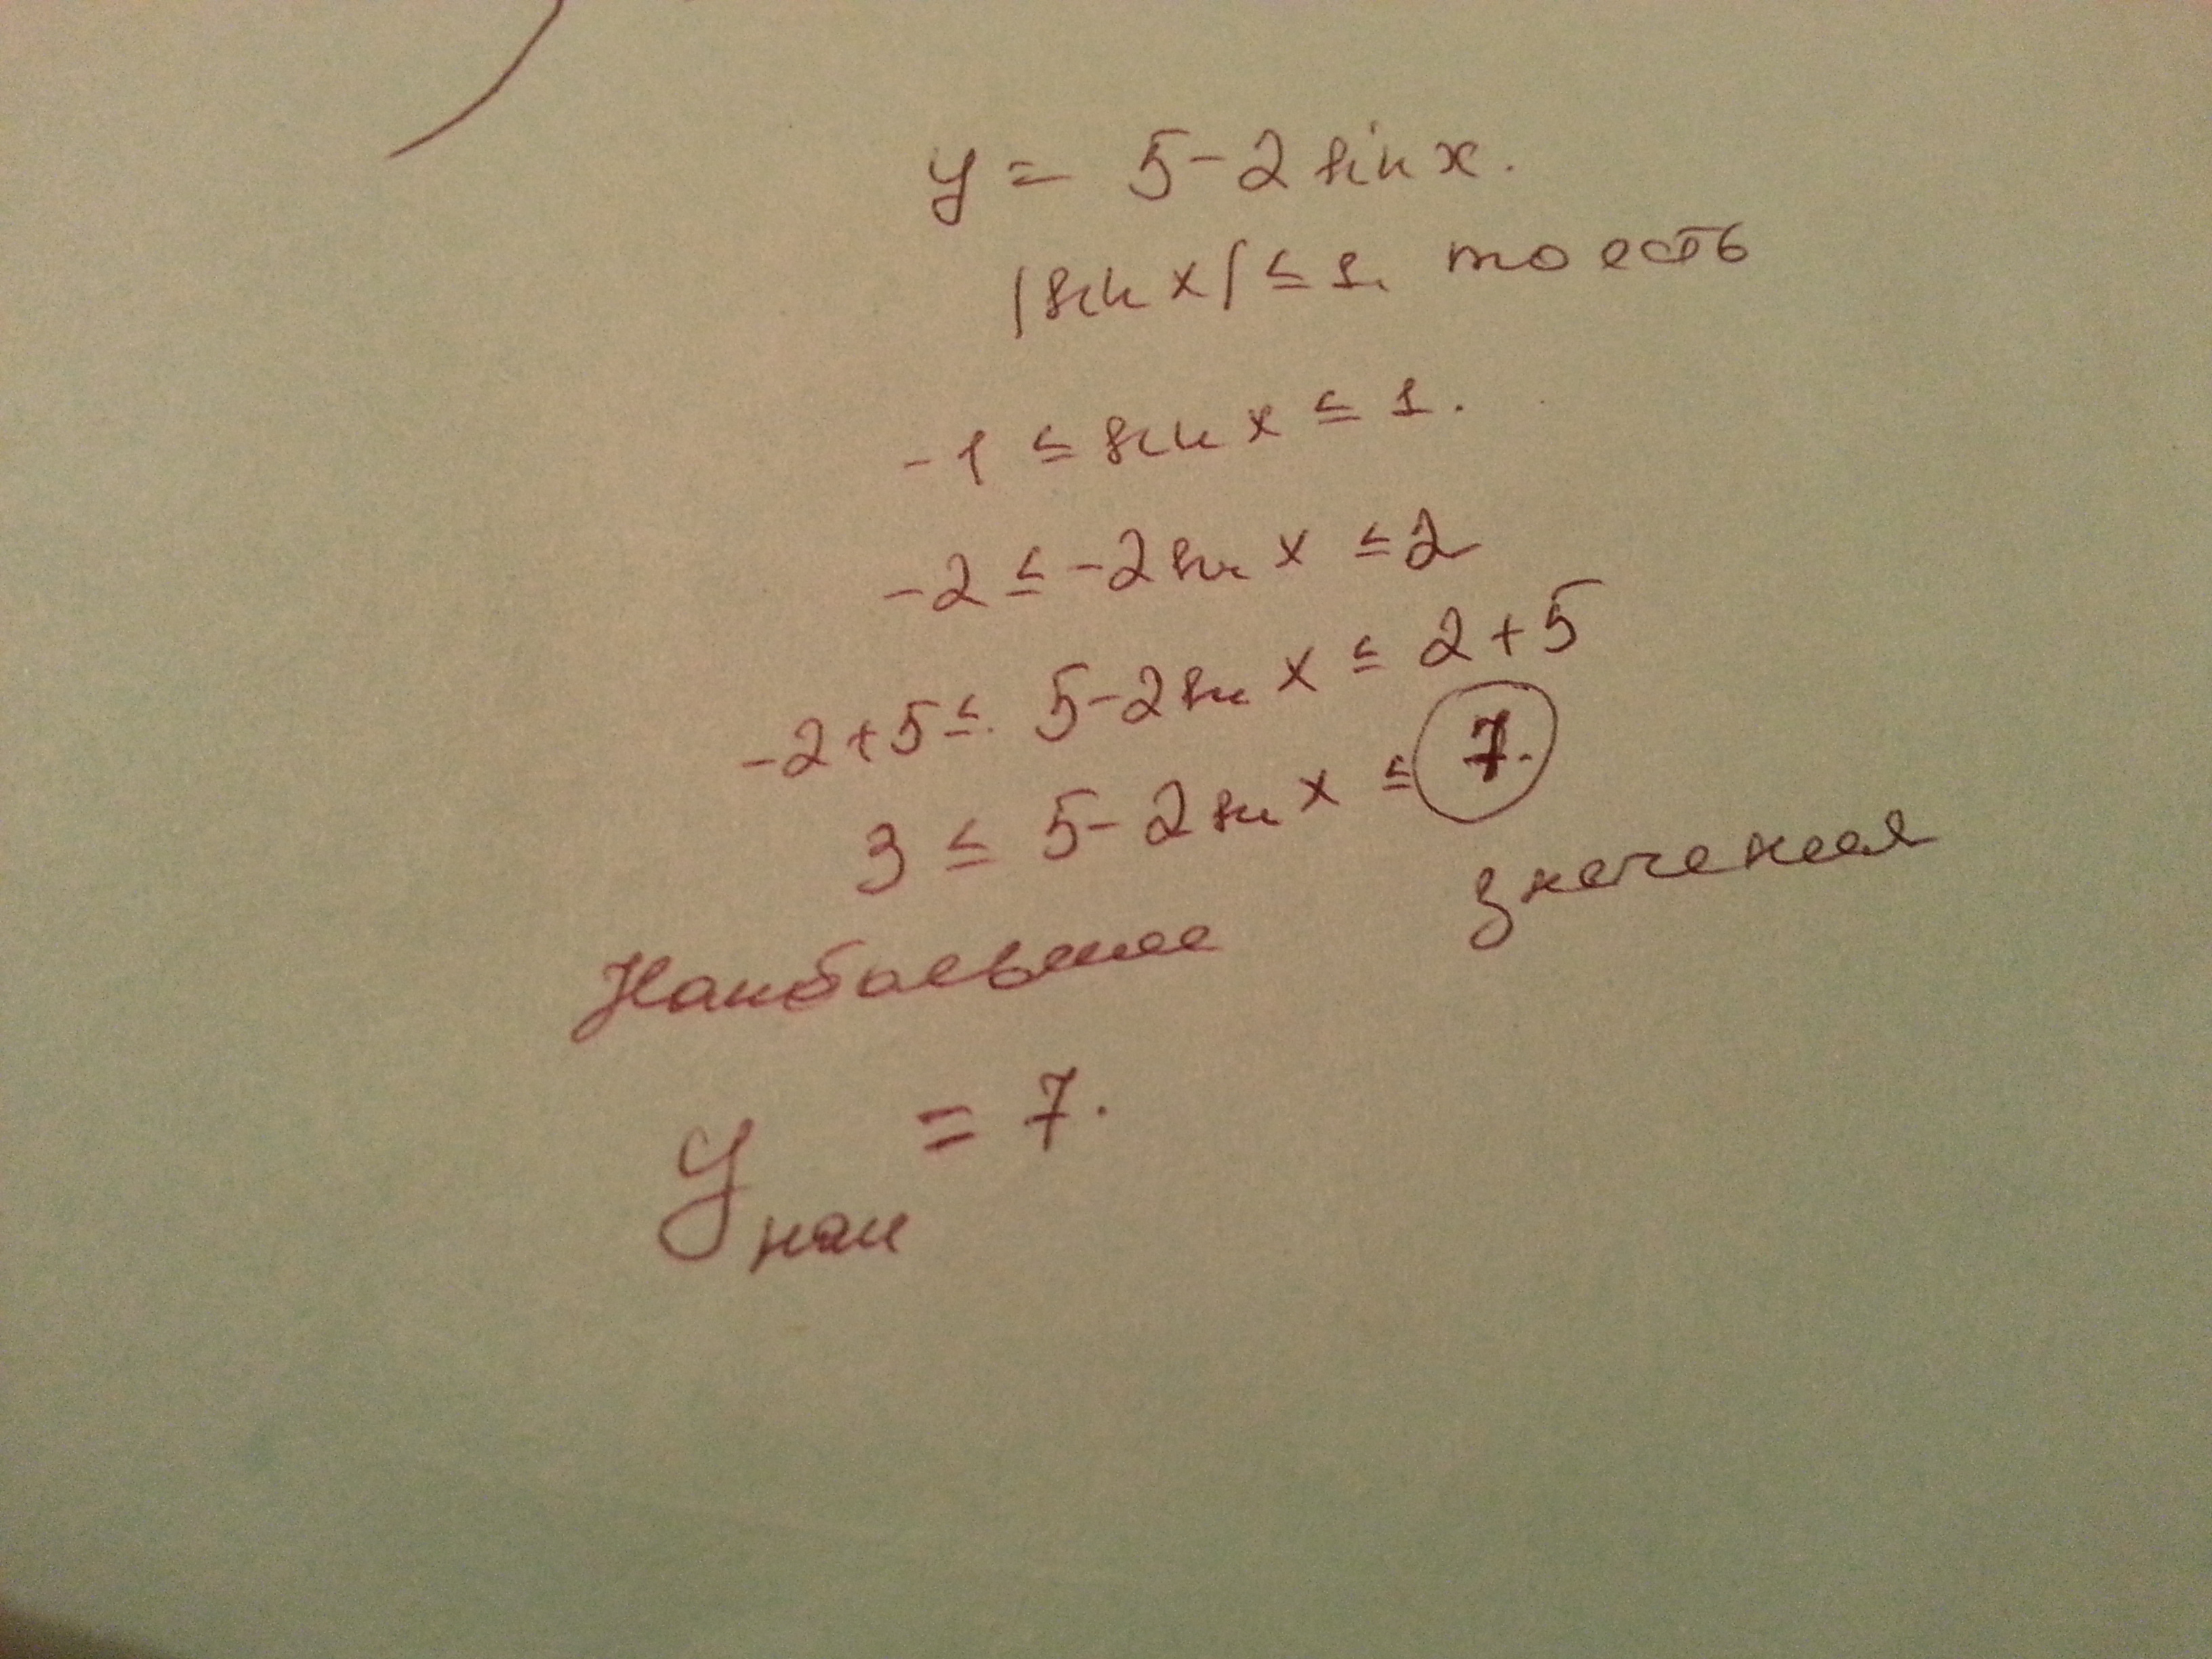 y = 5-2 sin x.
|sin x| ≤ 1. то есть
-1 ≤ sin x ≤ 1.
-2 ≤ -2 sin x ≤ 2
-2+5 ≤ 5-2 sin x ≤ 2+5
3 ≤ 5-2 sin x ≤ 7.
Наибольшее значения
y наи = 7.